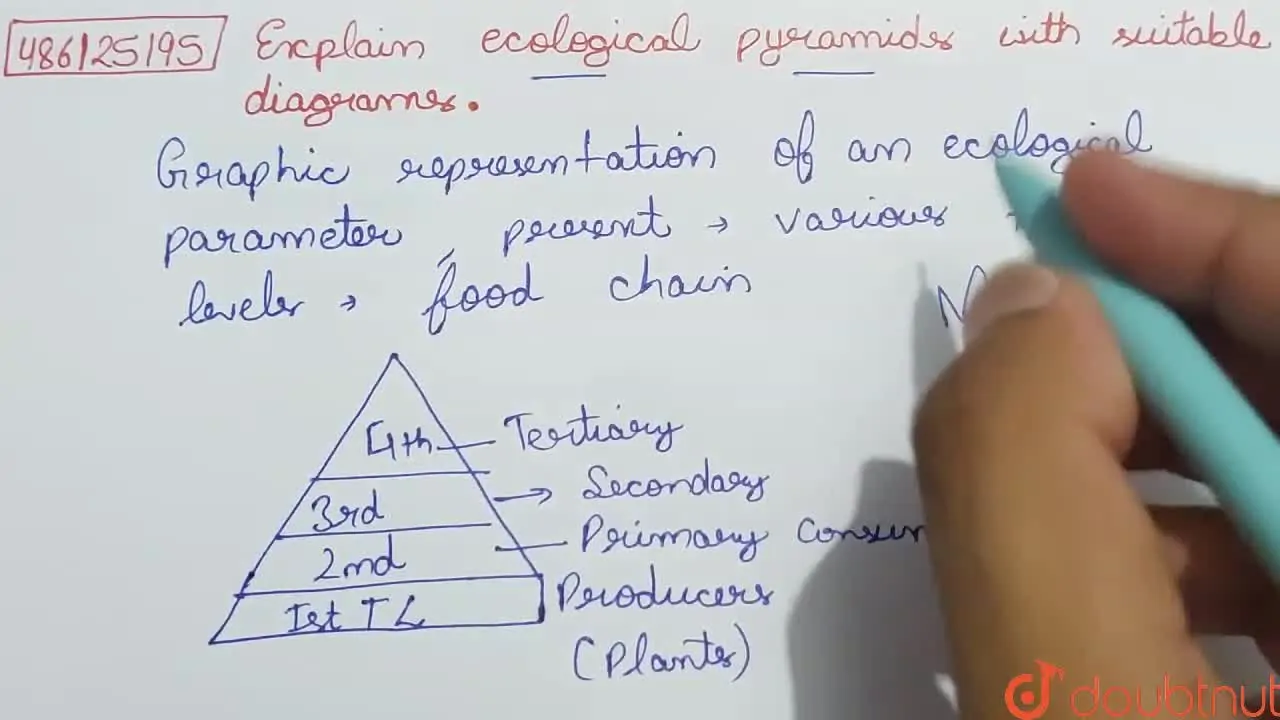 486125195 Explain ecological pyramids with suitable
diagrams.
Graphic representation of an ecological
parameter, present → various
levels → food chain
4th Tertiary
3rd → Secondary
2nd Primary
Ist TL Producers
(Plants)
doubtnut